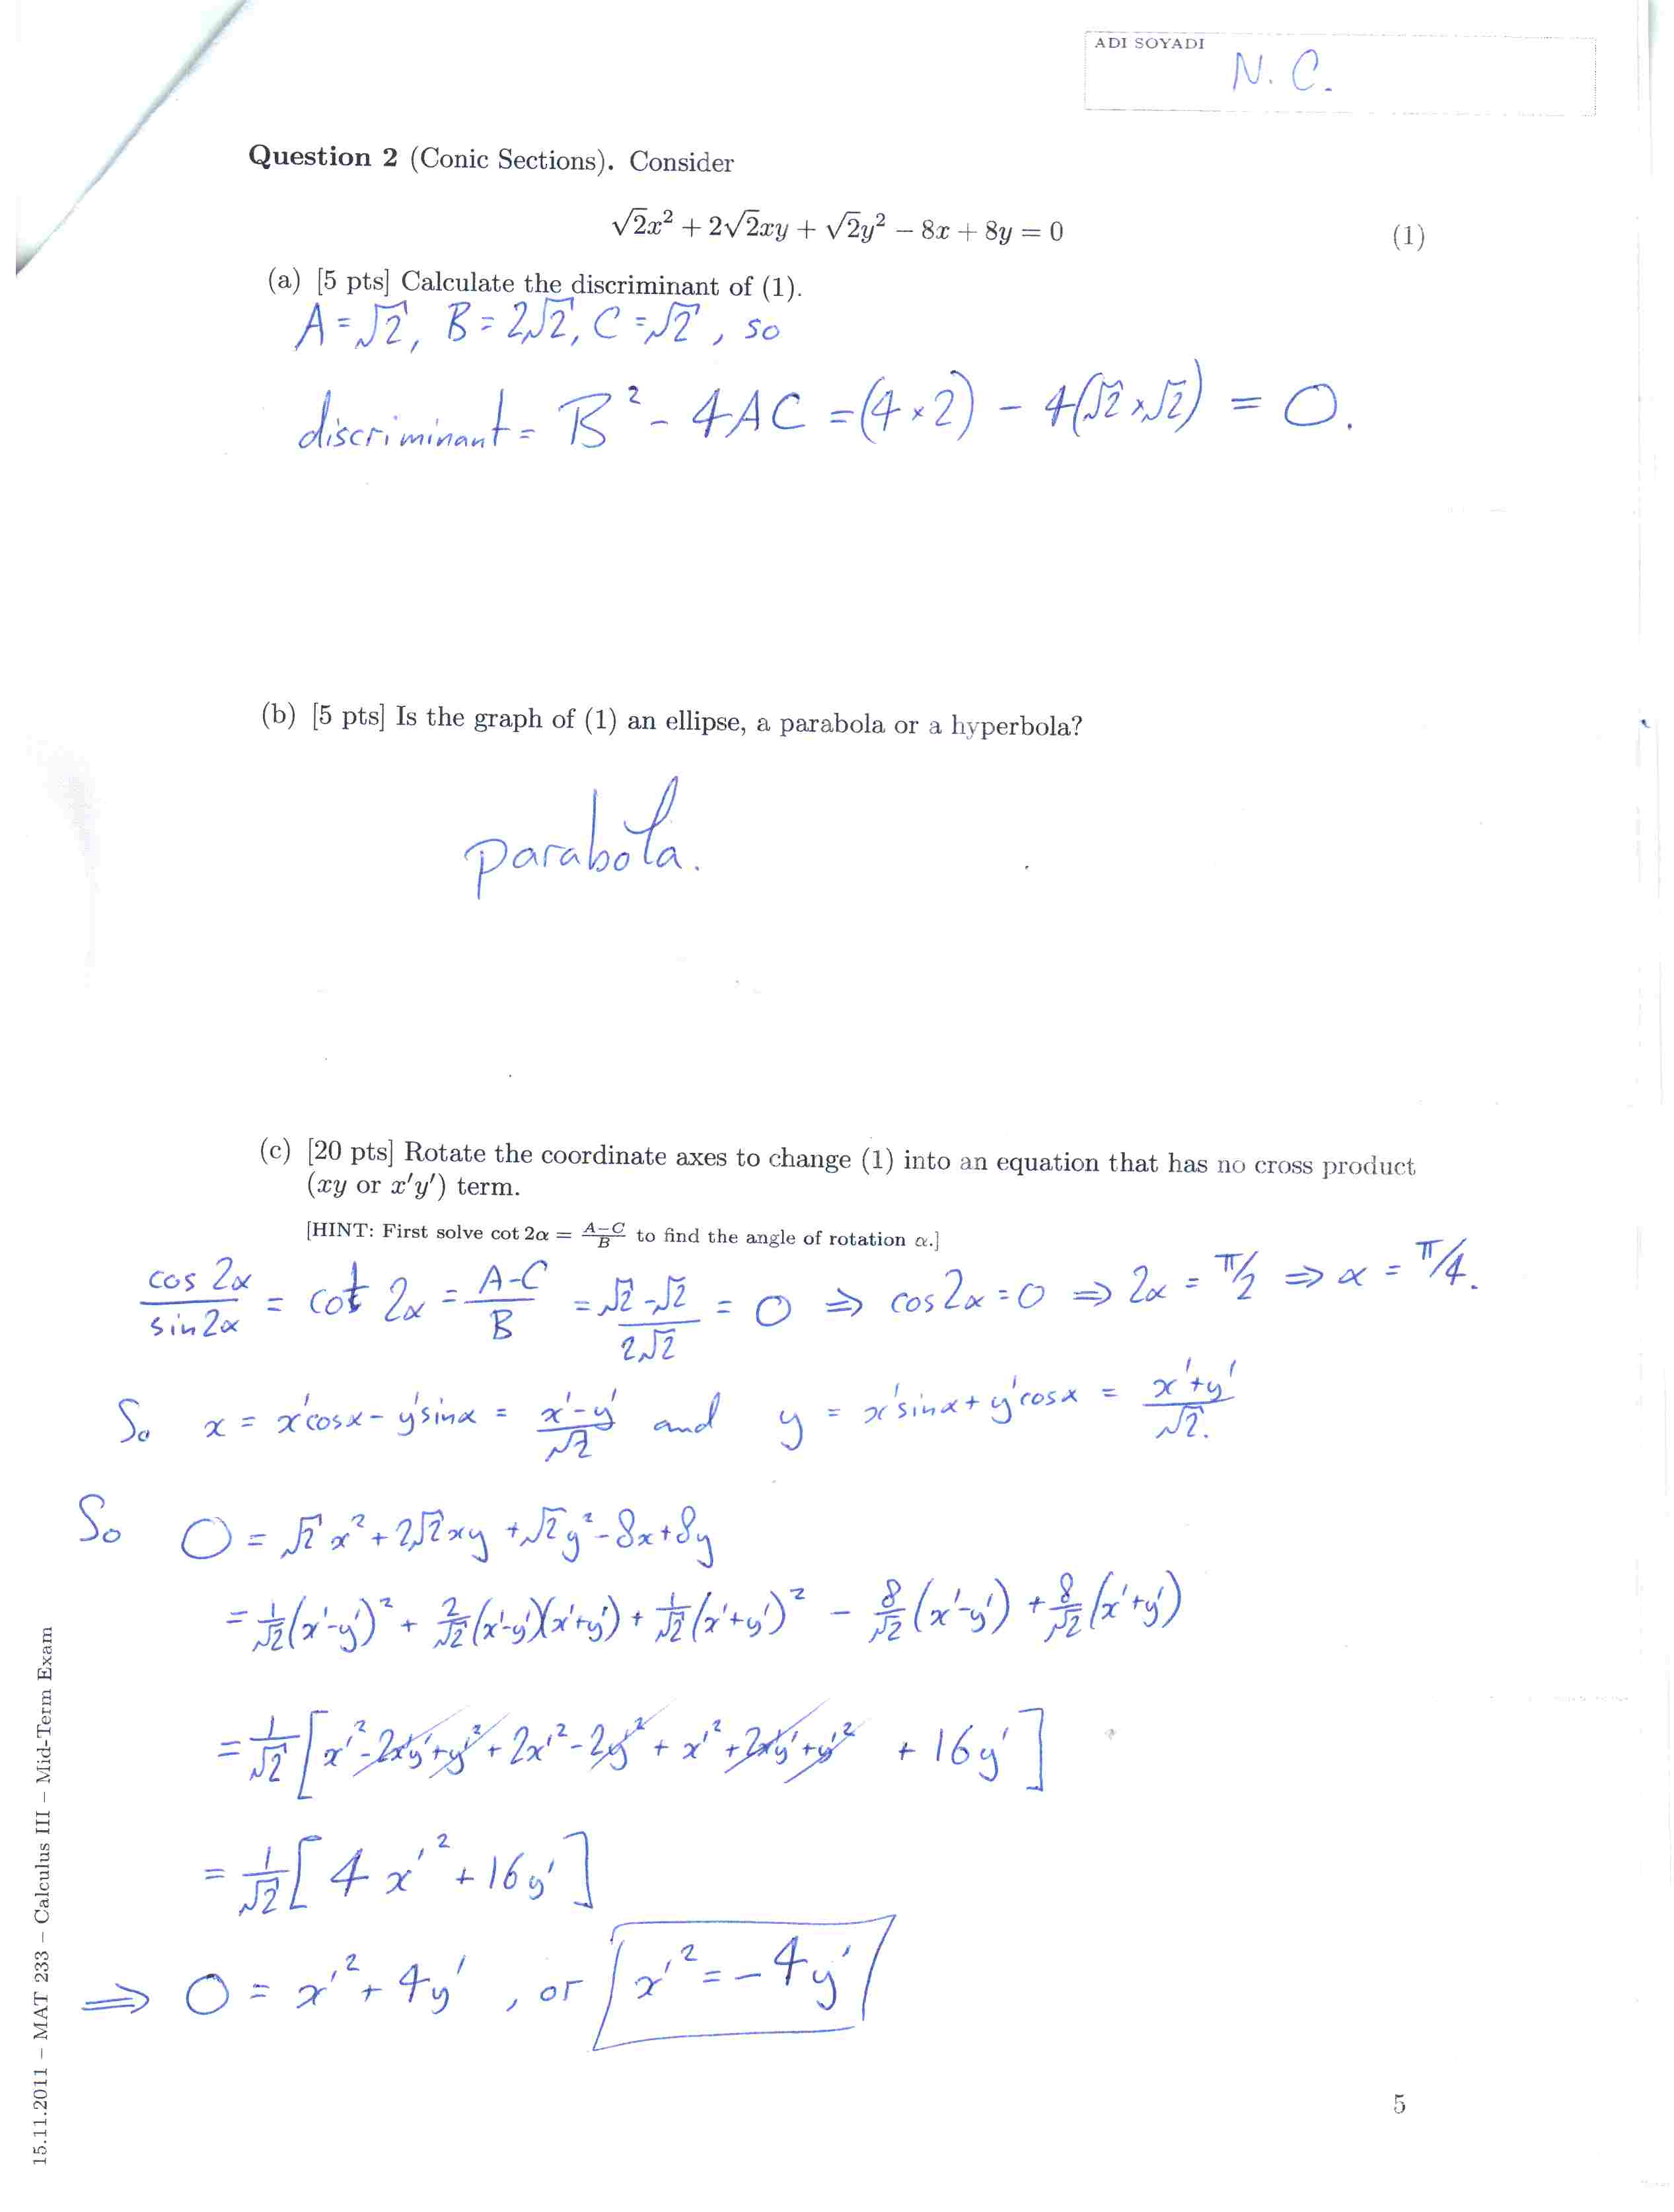 ADI SOYADI
N. C.
Question 2 (Conic Sections). Consider
√2x² + 2√2xy + √2y² − 8x + 8y = 0 (1)
(a) [5 pts] Calculate the discriminant of (1).
A = √2, B = 2√2, C = √2, so
discriminant = B² - 4AC = (4 × 2) - 4(√2 × √2) = 0.
(b) [5 pts] Is the graph of (1) an ellipse, a parabola or a hyperbola?
parabola.
(c) [20 pts] Rotate the coordinate axes to change (1) into an equation that has no cross product
(xy or x′y′) term.
[HINT: First solve cot 2α = (A−C)/B to find the angle of rotation α.]
cos 2α / sin 2α = cot 2α = (A-C)/B = (√2 - √2)/(2√2) = 0 ⇒ cos 2α = 0 ⇒ 2α = π/2 ⇒ α = π/4.
So x = x′cosα - y′sinα = (x′-y′)/√2 and y = x′sinα + y′cosα = (x′+y′)/√2.
So 0 = √2 x² + 2√2xy + √2y² - 8x + 8y
= 1/√2 (x′-y′)² + 2/√2 (x′-y′)(x′+y′) + 1/√2 (x′+y′)² - 8/√2 (x′-y′) + 8/√2 (x′+y′)
= 1/√2 [x′² - 2x′y′ + y′² + 2x′² - 2y′² + x′² + 2x′y′ + y′² + 16y′]
= 1/√2 [4x′² + 16y′]
⇒ 0 = x′² + 4y′, or x′² = -4y′
15.11.2011 – MAT 233 – Calculus III – Mid-Term Exam
5